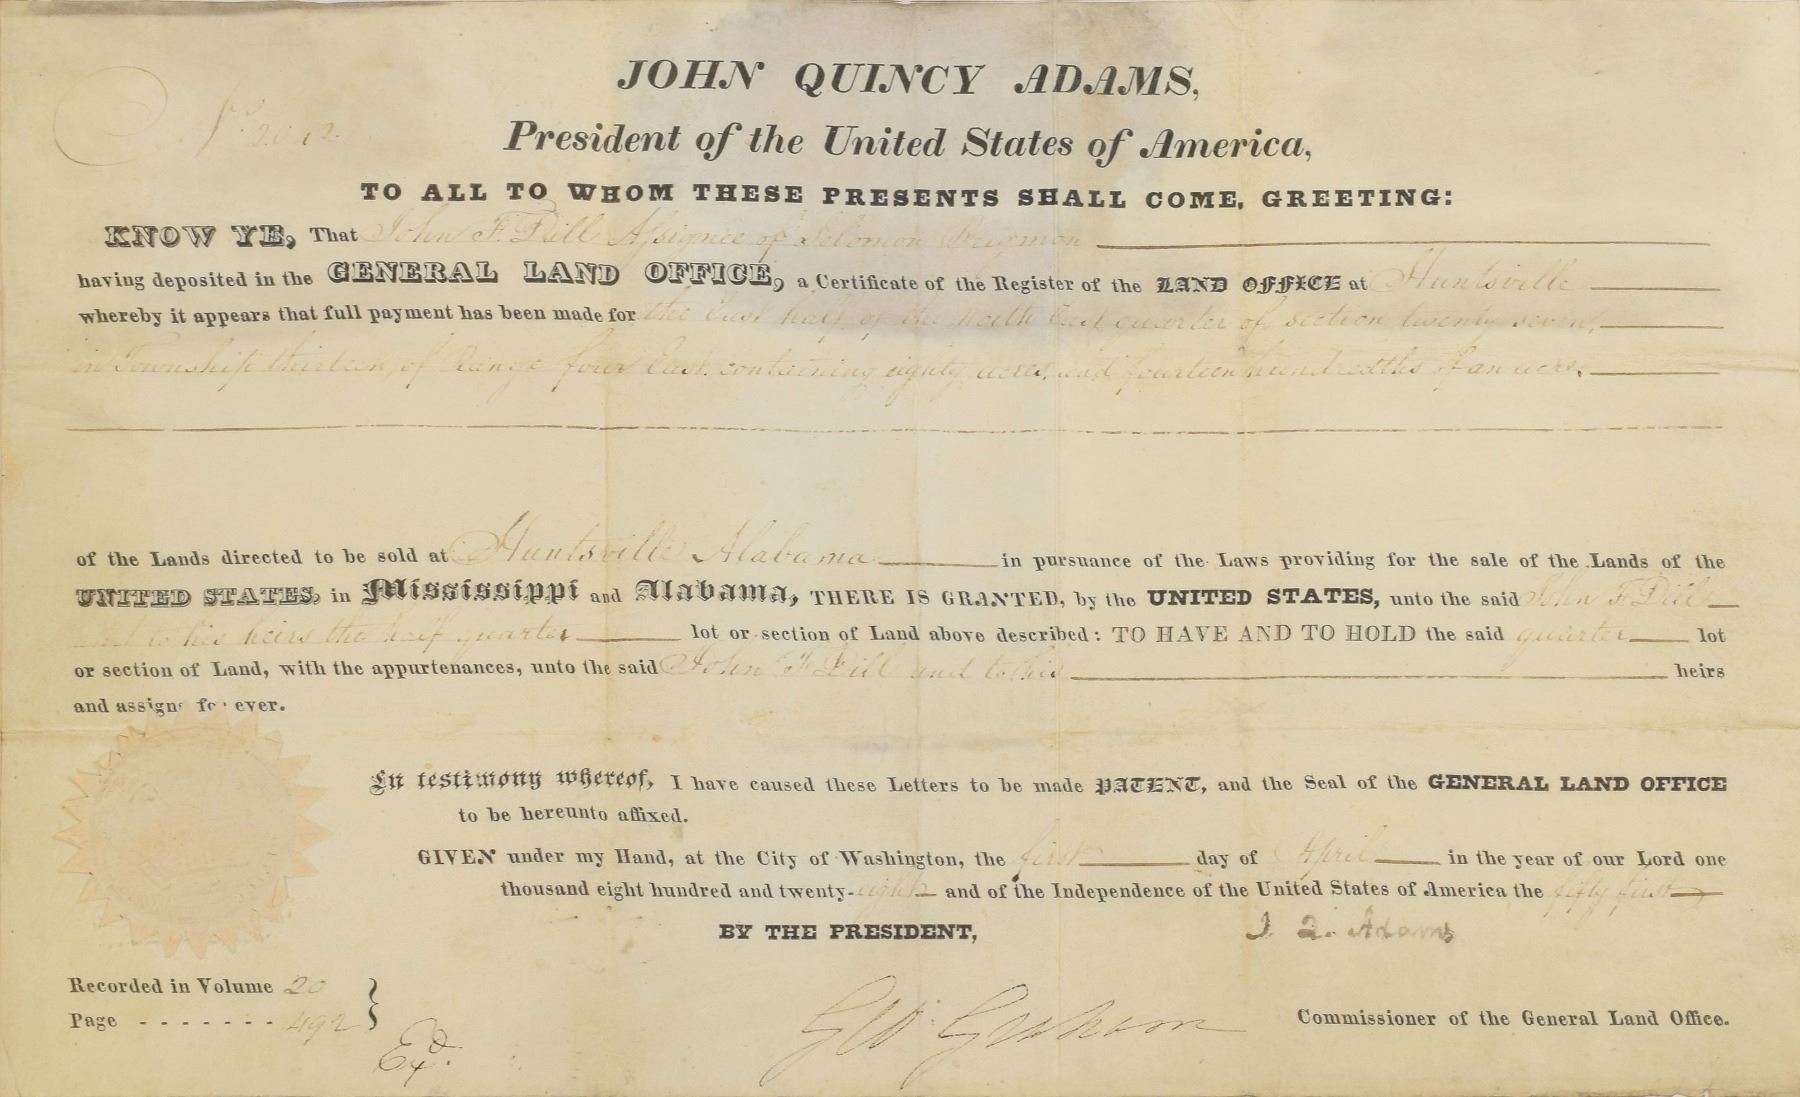 JOHN QUINCY ADAMS,
President of the United States of America,
TO ALL TO WHOM THESE PRESENTS SHALL COME, GREETING:
KNOW YE, That John F. Dill Assignee of Solomon
having deposited in the GENERAL LAND OFFICE, a Certificate of the Register of the LAND OFFICE at Huntsville
whereby it appears that full payment has been made for the East half of the north East quarter of section twenty seven,
in Township thirteen, of Range four East, containing eighty acres, and fourteen hundredths of an acre,
of the Lands directed to be sold at Huntsville Alabama in pursuance of the Laws providing for the sale of the Lands of the
UNITED STATES, in Mississippi and Alabama, THERE IS GRANTED, by the UNITED STATES, unto the said John F Dill
and to his heirs the half quarter lot or section of Land above described: TO HAVE AND TO HOLD the said quarter lot
or section of Land, with the appurtenances, unto the said John F Dill and to his heirs
and assigns for ever.
In testimony whereof, I have caused these Letters to be made PATENT, and the Seal of the GENERAL LAND OFFICE
to be hereunto affixed.
GIVEN under my Hand, at the City of Washington, the first day of April in the year of our Lord one
thousand eight hundred and twenty-eight and of the Independence of the United States of America the fifty first
BY THE PRESIDENT, J. Q. Adams
Recorded in Volume 20
Page - - - - - - - 492
Exd.
Geo: Graham Commissioner of the General Land Office.